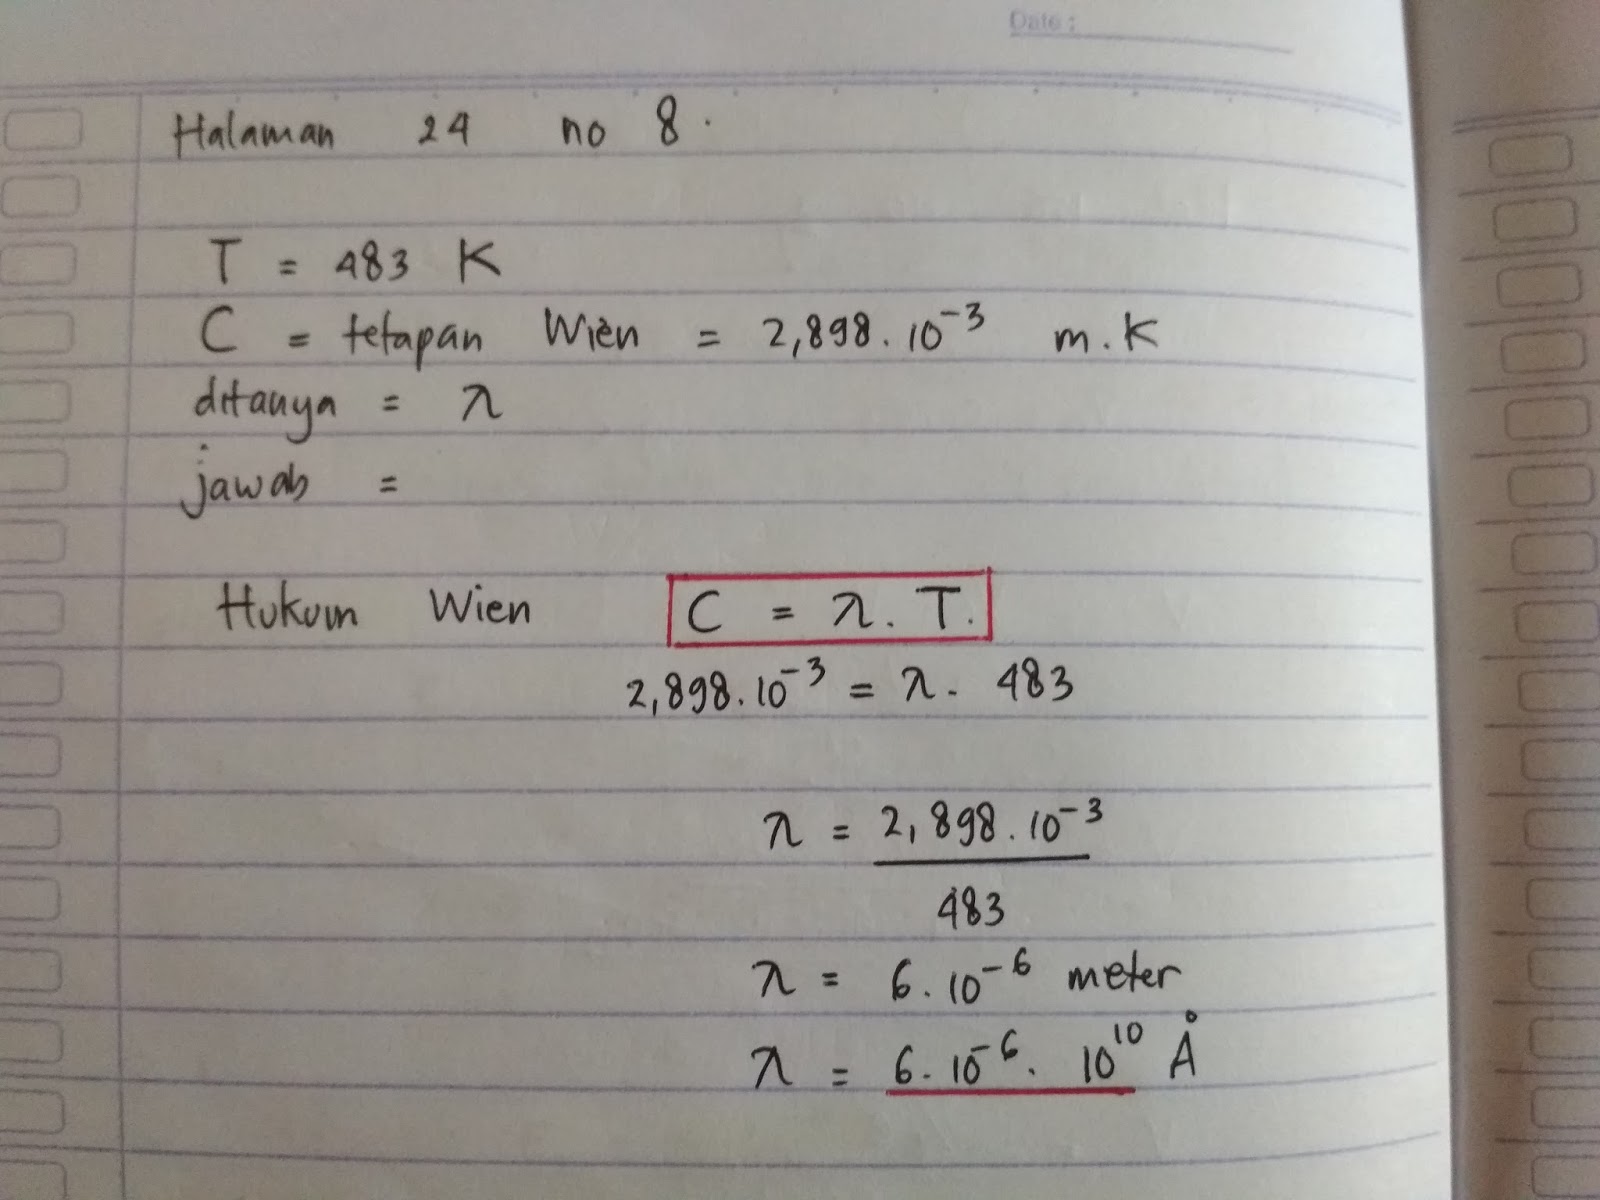 Date :
Halaman 24 no 8.
T = 483 K
C = tetapan Wien = 2,898.10⁻³ m.K
ditanya = λ
jawab =
Hukum Wien C = λ. T.
2,898.10⁻³ = λ. 483
λ = 2,898.10⁻³
483
λ = 6.10⁻⁶ meter
λ = 6.10⁻⁶. 10¹⁰ Å